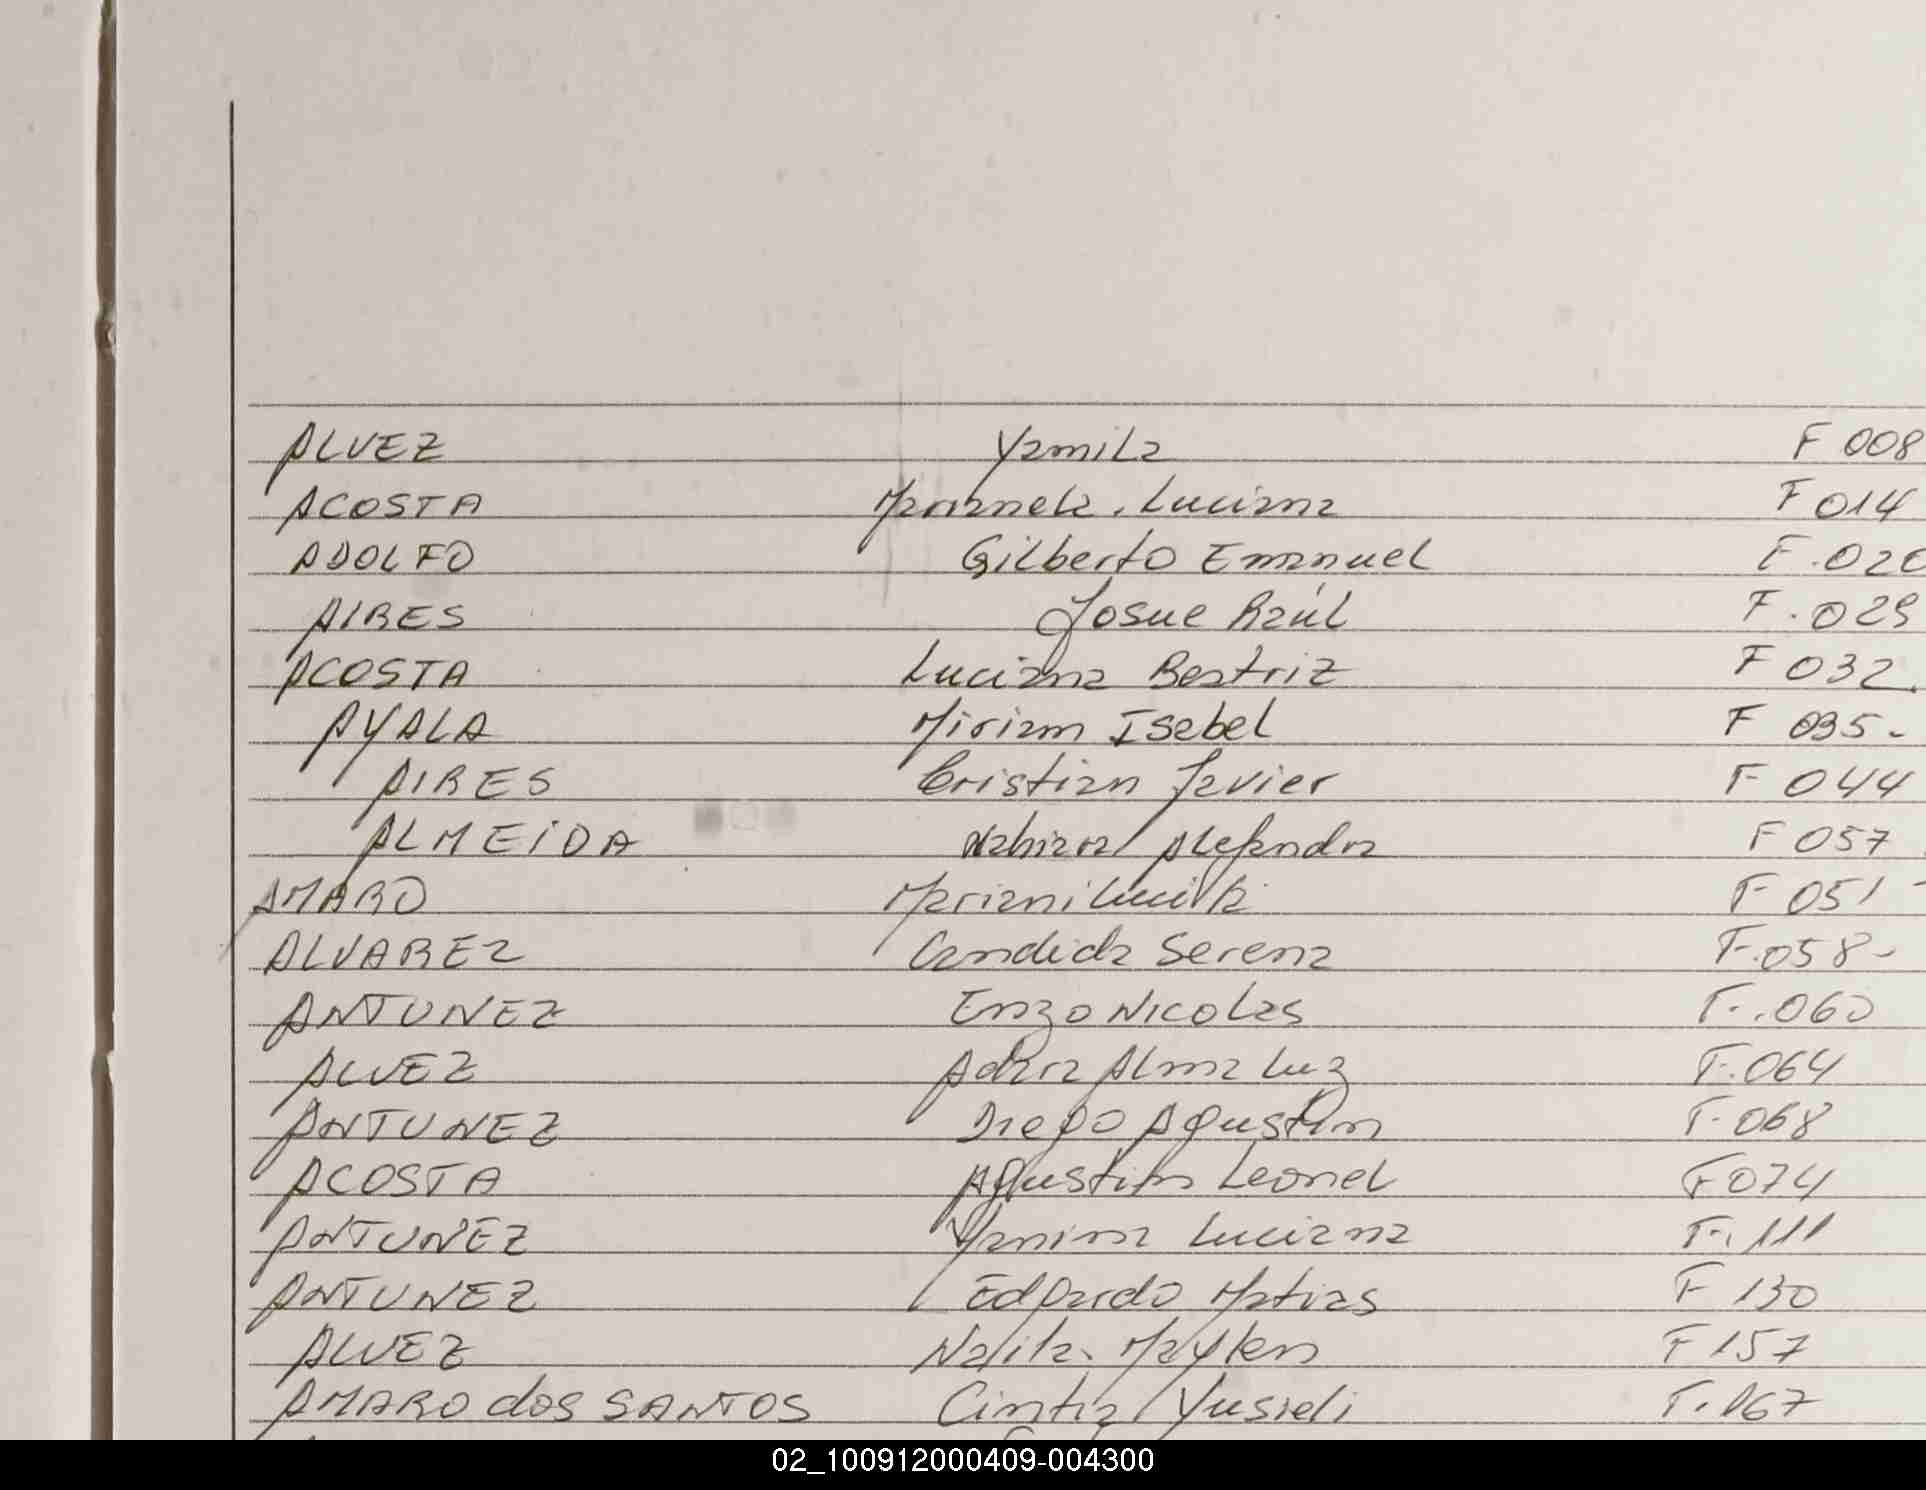 ALVEZ Yamila F 008
ACOSTA Marianela. Luciana F 014
ADOLFO Gilberto Emanuel F.020
AIRES Josue Raúl F.029
ACOSTA Luciana Beatriz F 032
AYALA Miriam Isabel F 035-
AIRES Cristian Javier F 044
ALMEiDA Nahiara Alejandra F 057
AMARO F 051
ALVAREZ Candida Serena F.058-
ANTUNEZ Enzo NICOLAS F.060
ALVEZ Alma Luz F.064
ANTUNEZ Diego Agustin F.068
ACOSTA Agustin Leonel F 074
ANTUNEZ Yanina Luciana F.111
ANTUNEZ Edgardo Matias F 130
ALVEZ Maylen F 157
AMARO dos SANTOS Cintia Yusieli F.167
02_100912000409-004300